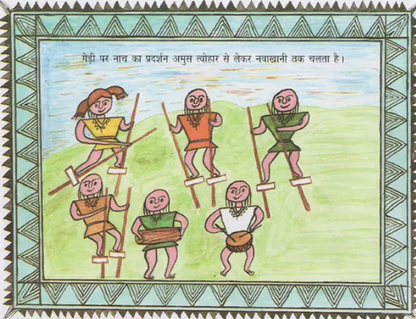 गेड़ी पर नाच का प्रदर्शन अमुस त्योहार से लेकर नवाखानी तक चलता है।